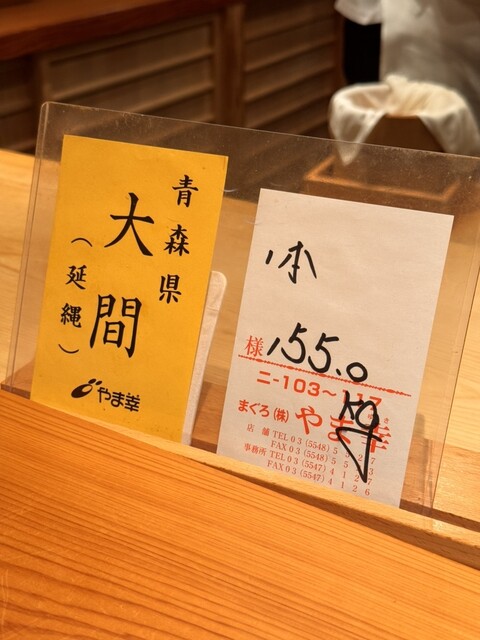 青森県
大間
（延縄）
やま幸
様
155.0
ニ-103～117
まぐろ(株)やま幸
店舗 TEL 03 (5548) 5
FAX 03 (5548) 5
事務所 TEL 03 (5547) 4 1 2
FAX 03 (5547) 4 1 2 6